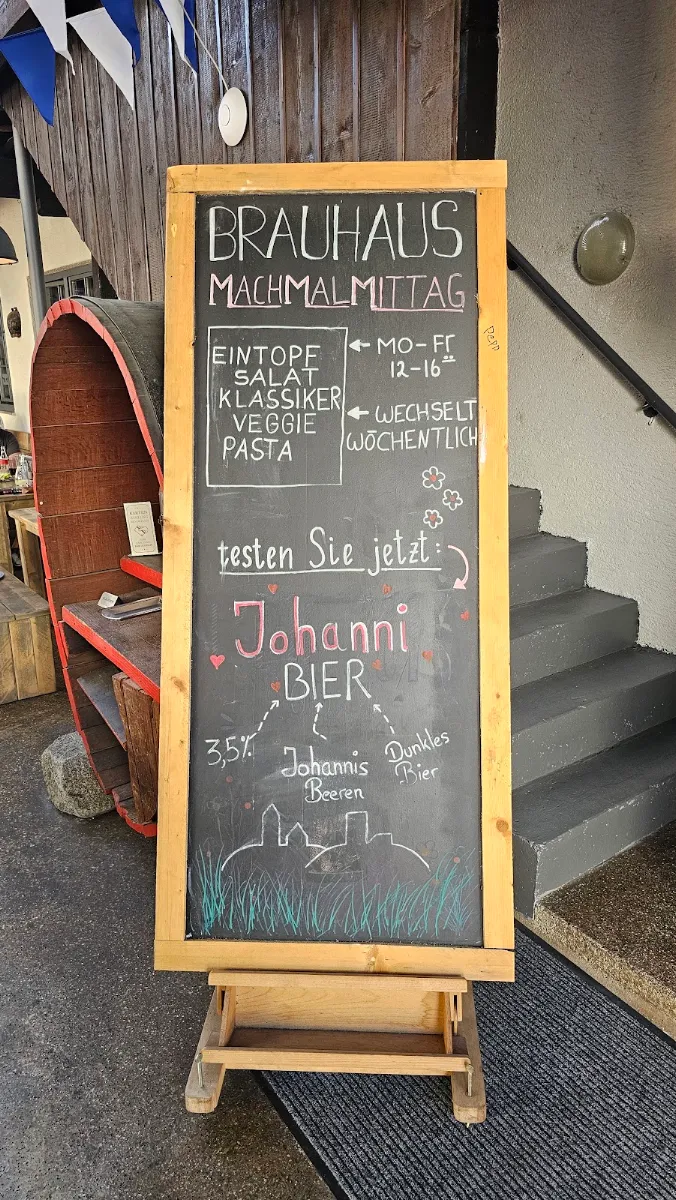 BRAUHAUS
MACHMALMITTAG
EINTOPF
SALAT
KLASSIKER
VEGGIE
PASTA
MO-Fr
12-16
WECHSELT
WÖCHENTLICH
testen Sie jetzt:
Johanni
BIER
3,5%
Johannis
Beeren
Dunkles
Bier